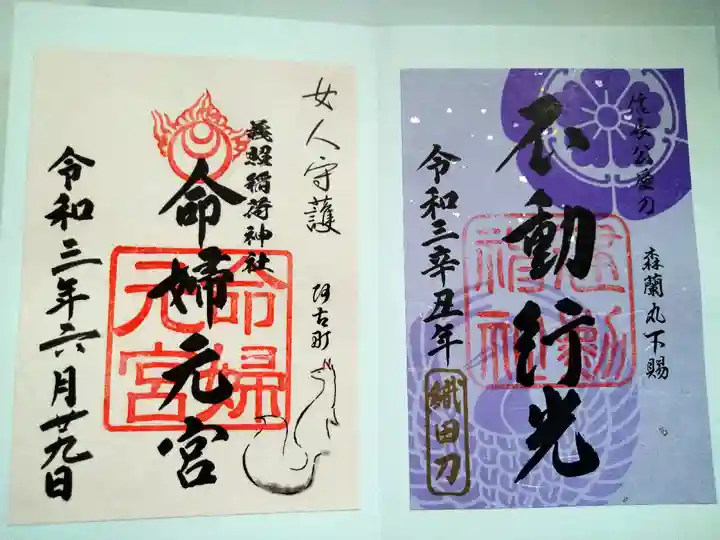 女人守護
義照稲荷神社
命婦元宮
命婦
元宮
阿古町
令和三年六月廿九日
信長公愛刀
不動行光
森蘭丸下賜
令和三辛丑年
織田刀